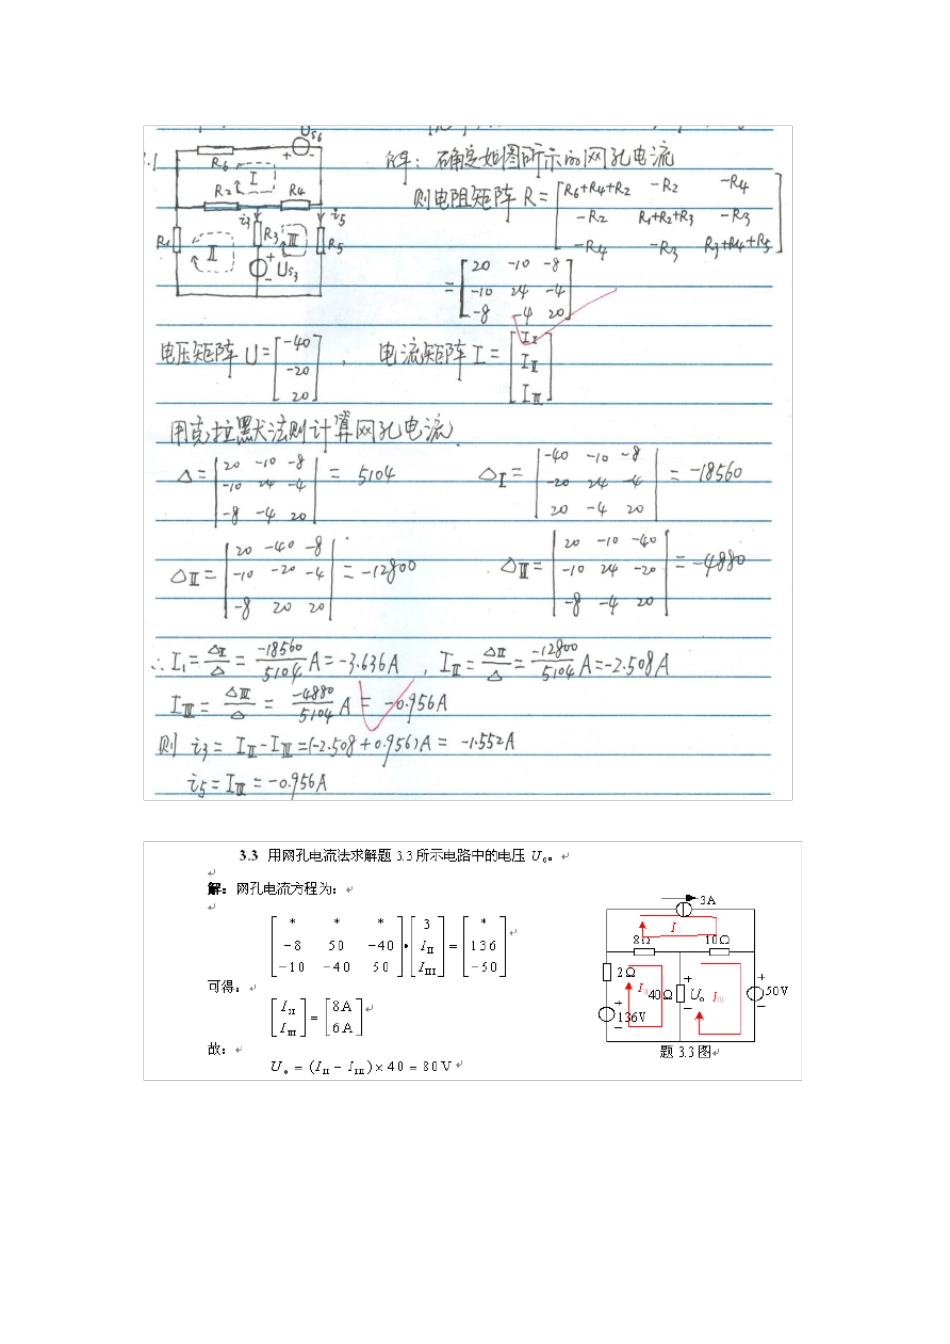 U_S6
R6
I
R2
R4
i3
i5
R1
II
R3
III
R5
U_S3
解：确定如图所示的网孔电流
则电阻矩阵 R = [R6+R4+R2 -R2 -R4
-R2 R1+R2+R3 -R3
-R4 -R3 R3+R4+R5]
= [20 -10 -8
-10 24 -4
-8 -4 20]
电压矩阵 U = [-40 -20 20] , 电流矩阵 I = [I_I I_II I_III]
用克拉默法则计算网孔电流.
Δ = |20 -10 -8
-10 24 -4
-8 -4 20| = 5104
Δ_I = |-40 -10 -8
-20 24 -4
20 -4 20| = -18560
Δ_II = |20 -40 -8
-10 -20 -4
-8 20 20| = -12800
Δ_III = |20 -10 -40
-10 24 -20
-8 -4 20| = -4880
∴ I_1 = Δ_I/Δ = -18560/5104 A = -3.636A , I_II = Δ_II/Δ = -12800/5104 A = -2.508A
I_III = Δ_III/Δ = -4880/5104 A = -0.956A
则 i3 = I_II - I_III = (-2.508+0.956)A = -1.552A
i5 = I_III = -0.956A
3.3 用网孔电流法求解题 3.3 所示电路中的电压 U_o。
解：网孔电流方程为：
[* * *
-8 50 -40
-10 -40 50] · [3 I_II I_III] = [* 136 -50]
可得：
[I_II I_III] = [8A 6A]
故：
U_o = (I_II - I_III) × 40 = 80V
3A
I
8Ω
10Ω
2Ω
I
40Ω
U_o
I
50V
136V
题 3.3 图